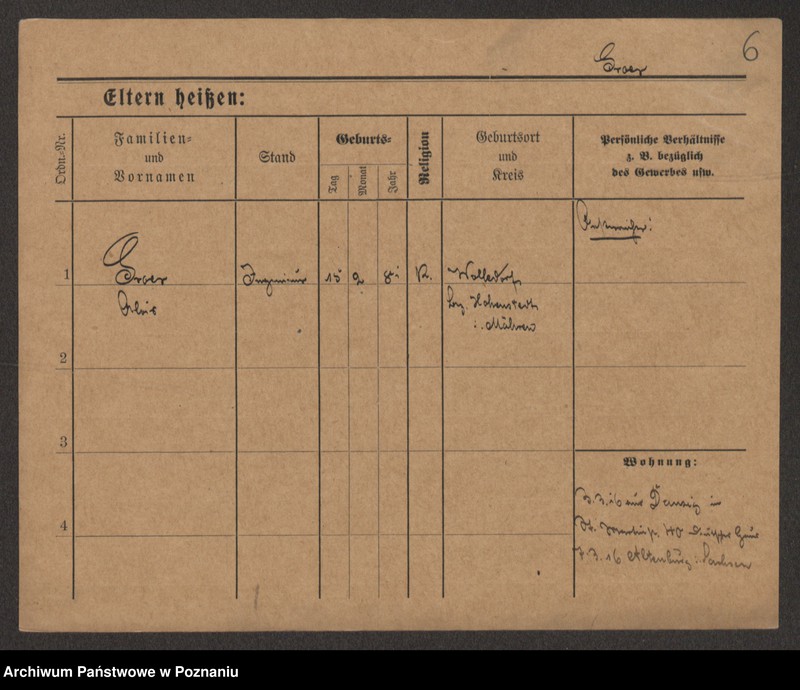 6
Eltern heißen:
Ordn.-Nr.
Familien-
und
Vornamen
Stand
Geburts-
Tag
Monat
Jahr
Religion
Geburtsort
und
Kreis
Persönliche Verhältnisse
z. B. bezüglich
des Gewerbes usw.
1
Ingenieur 15 2 K.
Hohenstadt
Mähren
2
3
Wohnung:
4
3.3.16 aus Danzig in
7.3.16 Altenburg Sachsen
Archiwum Państwowe w Poznaniu